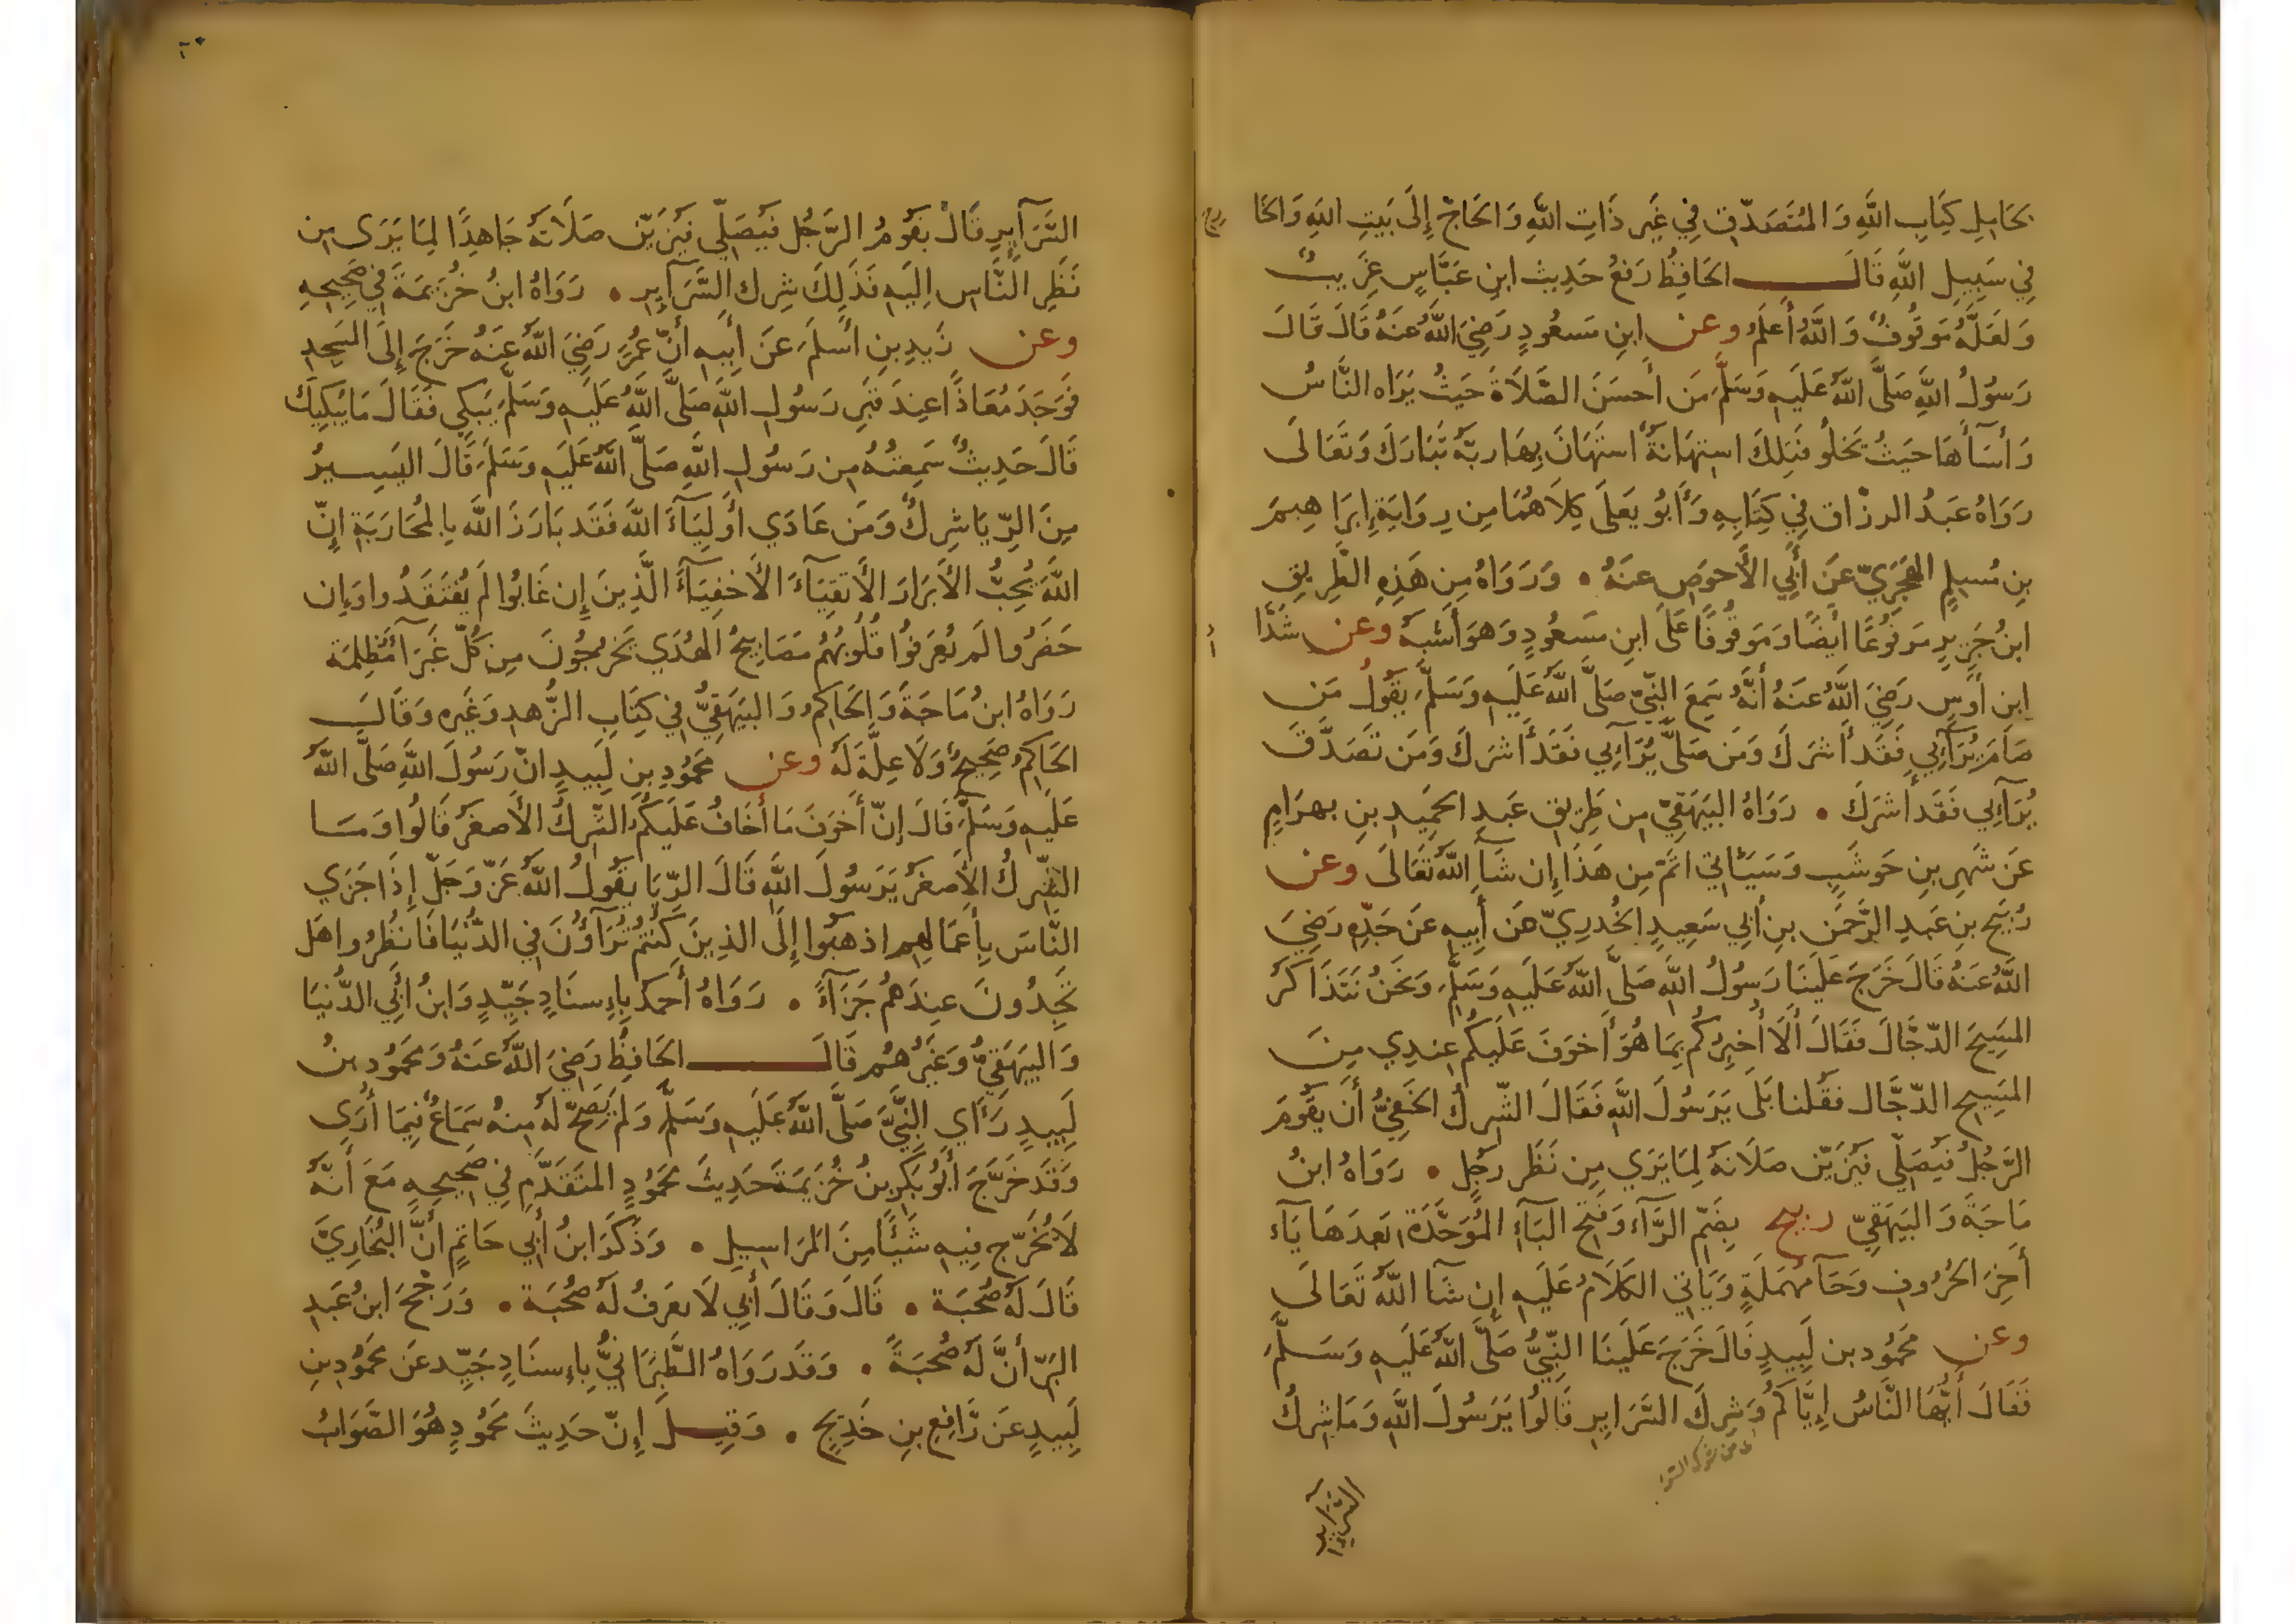 بحَامِلِ كِتَابِ اللَّهِ وَالمُتَصَدِّقِ فِي غَيرِ ذَاتِ اللَّهِ وَالحَاجْ إِلَى بَيتِ اللَّهِ وَالخَا رج
فِي سَبِيلِ اللَّهِ قَالَ الحَافِظُ رَفعُ حَدِيث ابنِ عَبَّاسٍ غَرِيبٌ
وَلَعَلَّهُ مَوقُوفٌ وَاللَّهُ أَعلَمُ وعن ابنِ مَسعُودٍ رَضِيَ اللَّهُ عَنهُ قَالَ قَالَ
رَسُولُ اللَّهِ صَلَّى اللَّهُ عَلَيهِ وَسَلَّمَ مَن أَحسَنَ الصَّلَاةَ حَيثُ يَرَاه النَّاسُ
وَأَسَآأَهَا حَيثُ يَخلُو فَتِلكَ استِهَانَةٌ استَهَانَ بِهَا ربَّهُ تَبَارَكَ وَتَعَالَى
رَوَاهُ عَبدُ الرزاق فِي كِتَابِهِ وَأَبُو يَعلَى كِلَاهُمَا مِن رِوَايَةِ إِبرَاهِيمَ
بنِ مُسلِمٍ الهَجَرِيّ عَن أَبِي الأَحوَصِ عَنهُ • وَرَوَاهُ مِن هَذِهِ الطَّرِيقِ
ابنُ جَرِيرٍ مَرفُوعًا أَيضًا وَمَوقُوفًا عَلَى ابنِ مسعُودٍ وَهوَ أَشبَهُ وعن شَدَّا
ابنِ أَوسٍ رَضِيَ اللَّهُ عَنهُ أَنَّهُ سَمِعَ النَّبِيّ صَلَّى اللَّهُ عَلَيهِ وَسَلَّمَ يَقُولُ مَن
صَامَ يُرَآئِي فَقَد أَشرَكَ وَمَن صَلَّى يُرَآئِي فَقَد أَشرَكَ وَمَن تَصَدَّقَ
يُرَآئِي فَقَد أَشرَكَ • رَوَاهُ البَيهَقِيّ مِن طَرِيقِ عَبدِ الحَمِيدِ بنِ بهرَامٍ
عَن شَهرِ بنِ حَوشَبٍ وَسَيَأتِي اتَمّ مِن هَذَا إِن شَآءَ اللَّهُ تَعَالَى وعن
رُبَيحِ بنِ عَبدِ الرَّحمَن بنِ أَبِي سَعِيدٍ الخُدرِيّ عَن أَبِيهِ عَن جَدِّهِ رَضِيَ
اللَّهُ عَنهُ قَالَ خَرَجَ عَلَينَا رَسُولُ اللَّهِ صَلَّى اللَّهُ عَلَيهِ وَسَلَّمَ وَنَحنُ نَتَذَاكَرُ
المَسِيحَ الدّجَّالَ فَقَالَ أَلَا أُخبِرُكُم بِمَا هُوَ أَخوَفَ عَلَيكُم عِندِي مِنَ
المَسِيحِ الدّجَّال فَقُلنا بَلَى يَرَسُولَ اللَّهِ فَقَالَ الشّركُ الخَفِيُّ أَن يَقُومَ
الرَّجُلُ فَيُصَلِّي فَيُزَيّن صَلَاتهُ لِمَا يَرَي مِن نَظَرِ رَجُلٍ • رَوَاهُ ابنُ
مَاجَةَ وَالبَيهَقِيّ ربيح بِضَمِّ الرَّآءِ وَفَتحِ البَآءِ المُوَحَّدَة بَعدَهَا يَآء
أَخِرَ الحُرُوفِ وَحَآ مُهمَلَةٍ وَيَاتِي الكَلَامُ عَلَيهِ إِن شَآ اللَّهُ تَعَالَى
وعن مَحمُود بن لَبِيدٍ قَالَ خَرَجَ عَلَينَا النَّبِيُّ صَلَّى اللَّهُ عَلَيهِ وَسَلَّمَ
فَقَالَ أَيُّهَا النَّاسُ إِيَّاكُم وَشِركَ السَّرَايِرِ قَالُوا يَرَسُولَ اللَّهِ وَمَا شِركُ
السَّرَآيِرِ
السَّرَآيِرِ قَالَ يَقُومُ الرَّجُل فَيُصَلِّي فَيُزَيِّن صَلَاتَهُ جَاهِدًا لِمَا يَرَى مِن
نَظَرِ النَّاسِ اِلَيهِ فَذَلِكَ شِرك السَّرَآيِرِ • رَوَاهُ ابنُ خُزَيمَةَ فِي صَحِيحِهِ
وعن زَيدِ بنِ أَسلَمَ عَن أَبِيهِ أَنّ عُمَرَ رَضِيَ اللَّهُ عَنهُ خَرَجَ إِلَى المَسجِدِ
فَوَجَدَ مُعَاذًا عِندَ قَبرِ رَسُولِ اللَّهِ صَلَّى اللَّهُ عَلَيهِ وَسَلَّمَ يَبكِي فَقَالَ مَا يُبكِيكَ
قَالَ حَدِيثٌ سَمِعتُهُ مِن رَسُولِ اللَّهِ صَلَّى اللَّهُ عَلَيهِ وَسَلَّمَ قَالَ اليَسِيرُ
مِنَ الرِّيَا شِركٌ وَمَن عَادَي أَولِيَآءَ اللَّهَ فَقَد بَارَزَ اللَّهَ بِالمُحَارَبَةِ إِنّ
اللَّهَ يُحِبُّ الأَبرَارَ الأَتقِيَآءَ الأَخفِيَآءَ الَّذِينَ إِن غَابُوا لَم يُفتَقَدُوا وَإِن
حَضَرُوا لَم يُعرَفُوا قُلُوبُهُم مَصَابِيحُ الهُدَي يَخرُجُونَ مِن كُلّ غَبرَآ مُظلِمَة
رَوَاهُ ابنُ مَاجَةَ وَالحَاكِمُ وَالبَيهَقِيُّ فِي كِتَابِ الزُّهدِ وَغَيرِه وَقَالَ
الحَاكِمُ صَحِيحٌ وَلَا عِلَّةَ لَهُ وعن مَحمُودِ بنِ لَبِيدٍ انّ رَسُولَ اللَّهِ صَلَّى اللَّهُ
عَلَيهِ وَسَلَّمَ قَالَ إِنّ أَخوَفَ مَا أَخَافُ عَلَيكُمُ الشّركُ الأَصغَرُ قَالُوا وَمَا
الشّركُ الأَصغَرُ يَرَسُولَ اللَّهِ قَالَ الرِّيَا يَقُولُ اللَّهُ عَزّ وَجَلّ إِذَا جَزَي
النَّاسَ بِأَعمَالِهِم اذهَبُوا إِلَى الذِينَ كُنتُم تُرَآؤُنَ فِي الدُّنيَا فَانظُرُوا هَل
تَجِدُونَ عِندَهُم جَزَآءً • رَوَاهُ أَحمَد بِإِسنَادٍ جَيّدٍ وَابنُ أَبِي الدُّنيَا
وَالبَيهَقِيُّ وَغَيرُهُم قَالَ الحَافِظُ رَضِيَ اللَّهُ عَنهُ وَمَحمُود بنُ
لَبِيدٍ رَأَي النَّبِيَّ صَلَّى اللَّهُ عَلَيهِ وَسَلَّمَ وَلَم يَصِحّ لَهُ مِنهُ سَمَاعٌ فِيمَا أُرَي
وَقَد خَرَّجَ أَبُو بَكرِ بنُ خُزَيمَةَ حَدِيثَ مَحمُودٍ المتَقَدِّمِ فِي صَحِيحِهِ مَعَ أَنَّهُ
لَا يُخَرّج فِيهِ شَيئًا مِنَ المَرَاسِيلِ • وَذَكَرَ ابنُ أَبِي حَاتِمٍ أَنَّ البُخَارِيَّ
قَالَ لَهُ صُحبَة • قَالَ وَقَالَ أَبِي لَا يعرَفُ لَهُ صُحبَة • وَرَجّحَ ابنُ عَبدِ
البَرّ أَنَّ لَهُ صُحبَةً • وَقَد رَوَاهُ الطَّبَرَانِيُّ بِإِسنَادٍ جَيّد عَن مَحمُودِ بنِ
لَبِيدٍ عَن رَّافِعِ بنِ خَدِيجٍ • وَقِيلَ إِنّ حَدِيثَ مَحمُودٍ هُوَ الصَّوَابُ